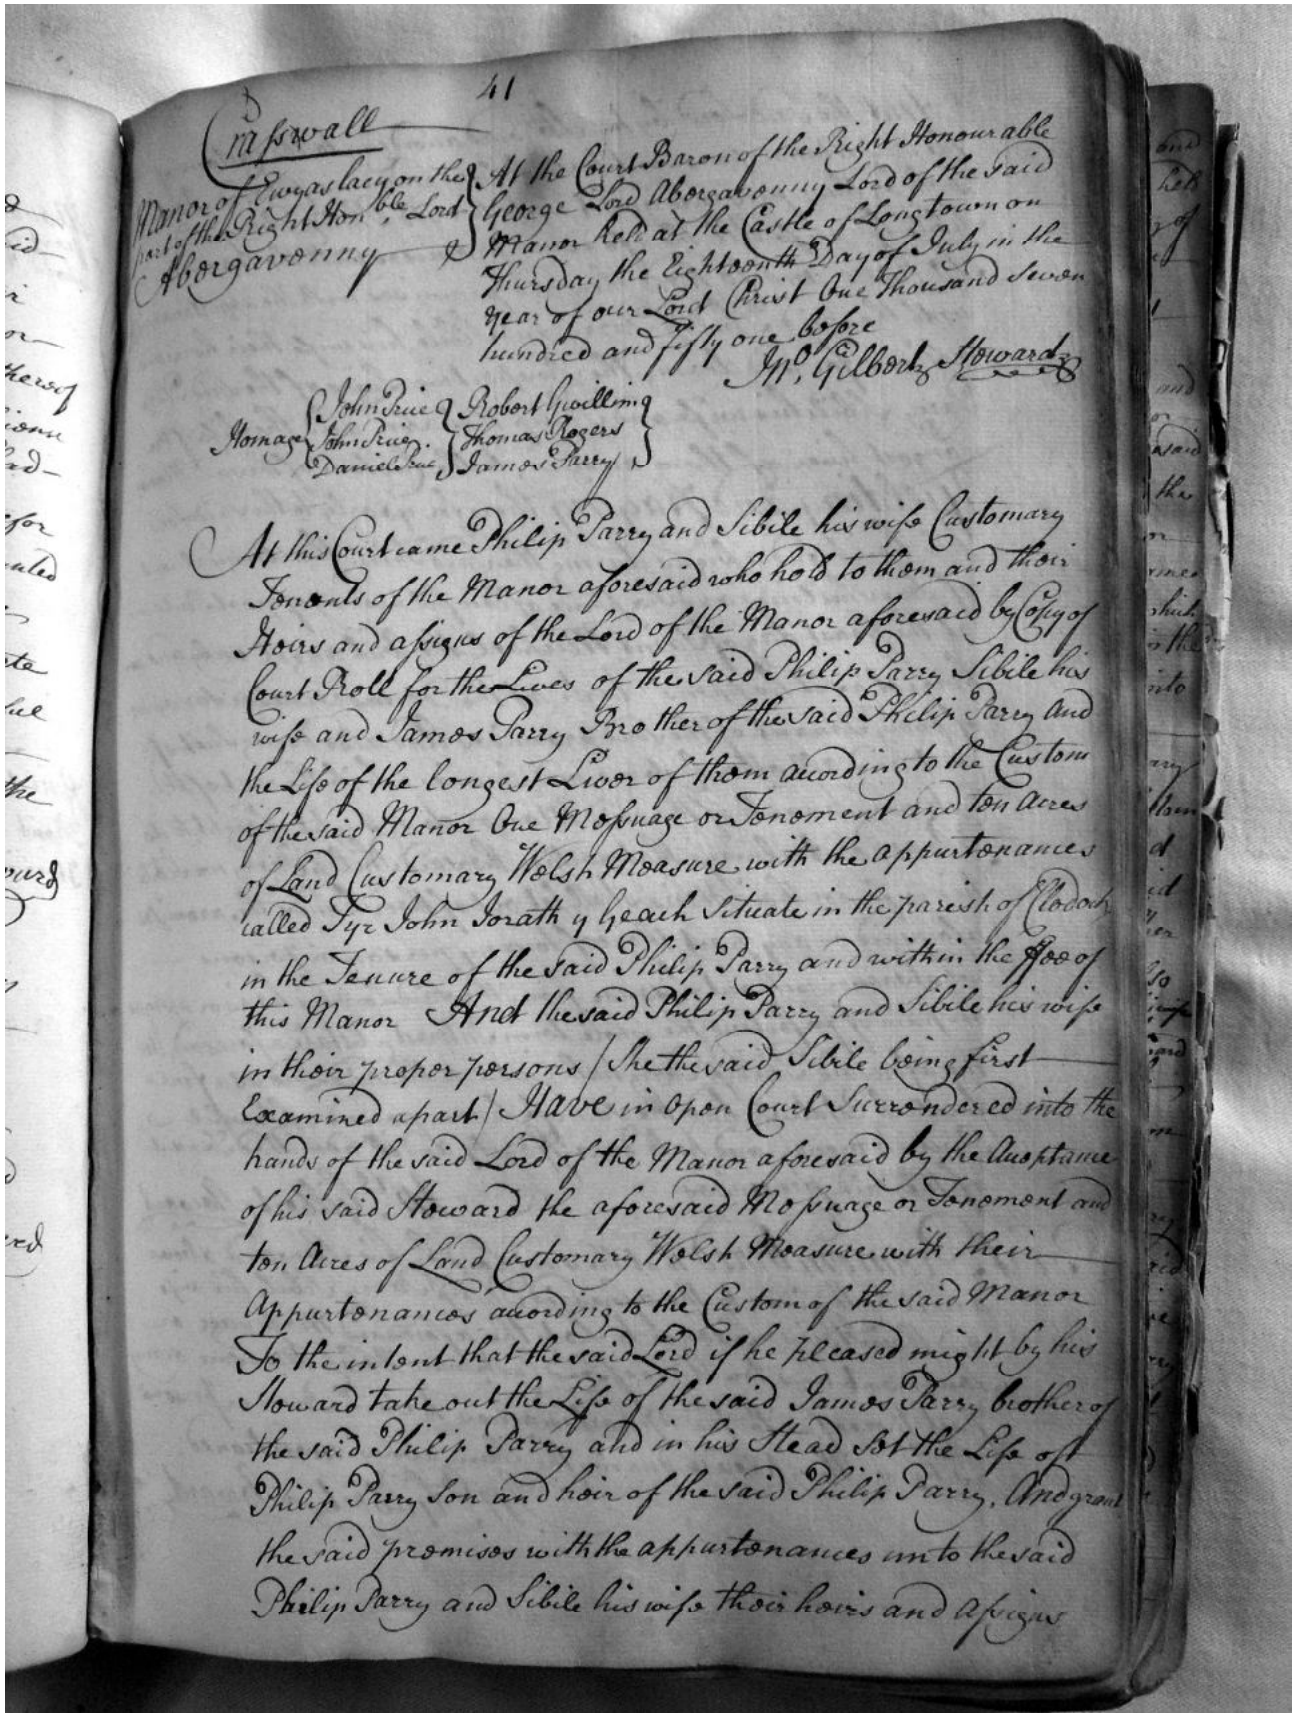 41
Crasswall
Manor of Ewyas lacy on the
part of the Right Hon.ble Lord
Abergavenny
At the Court Baron of the Right Honourable
George Lord Abergavenny Lord of the said
Manor held at the Castle of Longtown on
Thursday the Eighteenth Day of July in the
year of our Lord Christ One Thousand Seven
hundred and fifty one before
Jno. Gilbert Steward
Homage
John Price
John Price
Daniel Price
Robert Gwillim
Thomas Rogers
James Parry
At this Court came Philip Parry and Sibile his wife Customary
Tenants of the Manor aforesaid who hold to them and their
Heirs and assigns of the Lord of the Manor aforesaid by Copy of
Court Roll for the Lives of the said Philip Parry Sibile his
wife and James Parry Brother of the said Philip Parry and
the Life of the longest Liver of them according to the Custom
of the said Manor One Messuage or Tenement and ten Acres
of Land Customary Welsh Measure with the appurtenances
called Tyr John Jorath y Geach Situate in the parish of Clodock
in the Tenure of the said Philip Parry and within the ffee of
this Manor And the said Philip Parry and Sibile his wife
in their proper persons / She the said Sibile being first
Examined apart / Have in Open Court Surrendered into the
hands of the said Lord of the Manor aforesaid by the Acceptance
of his said Steward the aforesaid Messuage or Tenement and
ten Acres of Land Customary Welsh Measure with their
Appurtenances according to the Custom of the said Manor
To the intent that the said Lord if he pleased might by his
Steward take out the Life of the said James Parry brother of
the said Philip Parry and in his Stead Set the Life of
Philip Parry Son and heir of the said Philip Parry, And grant
the said premises with the appurtenances unto the said
Philip Parry and Sibile his wife their heirs and Assigns